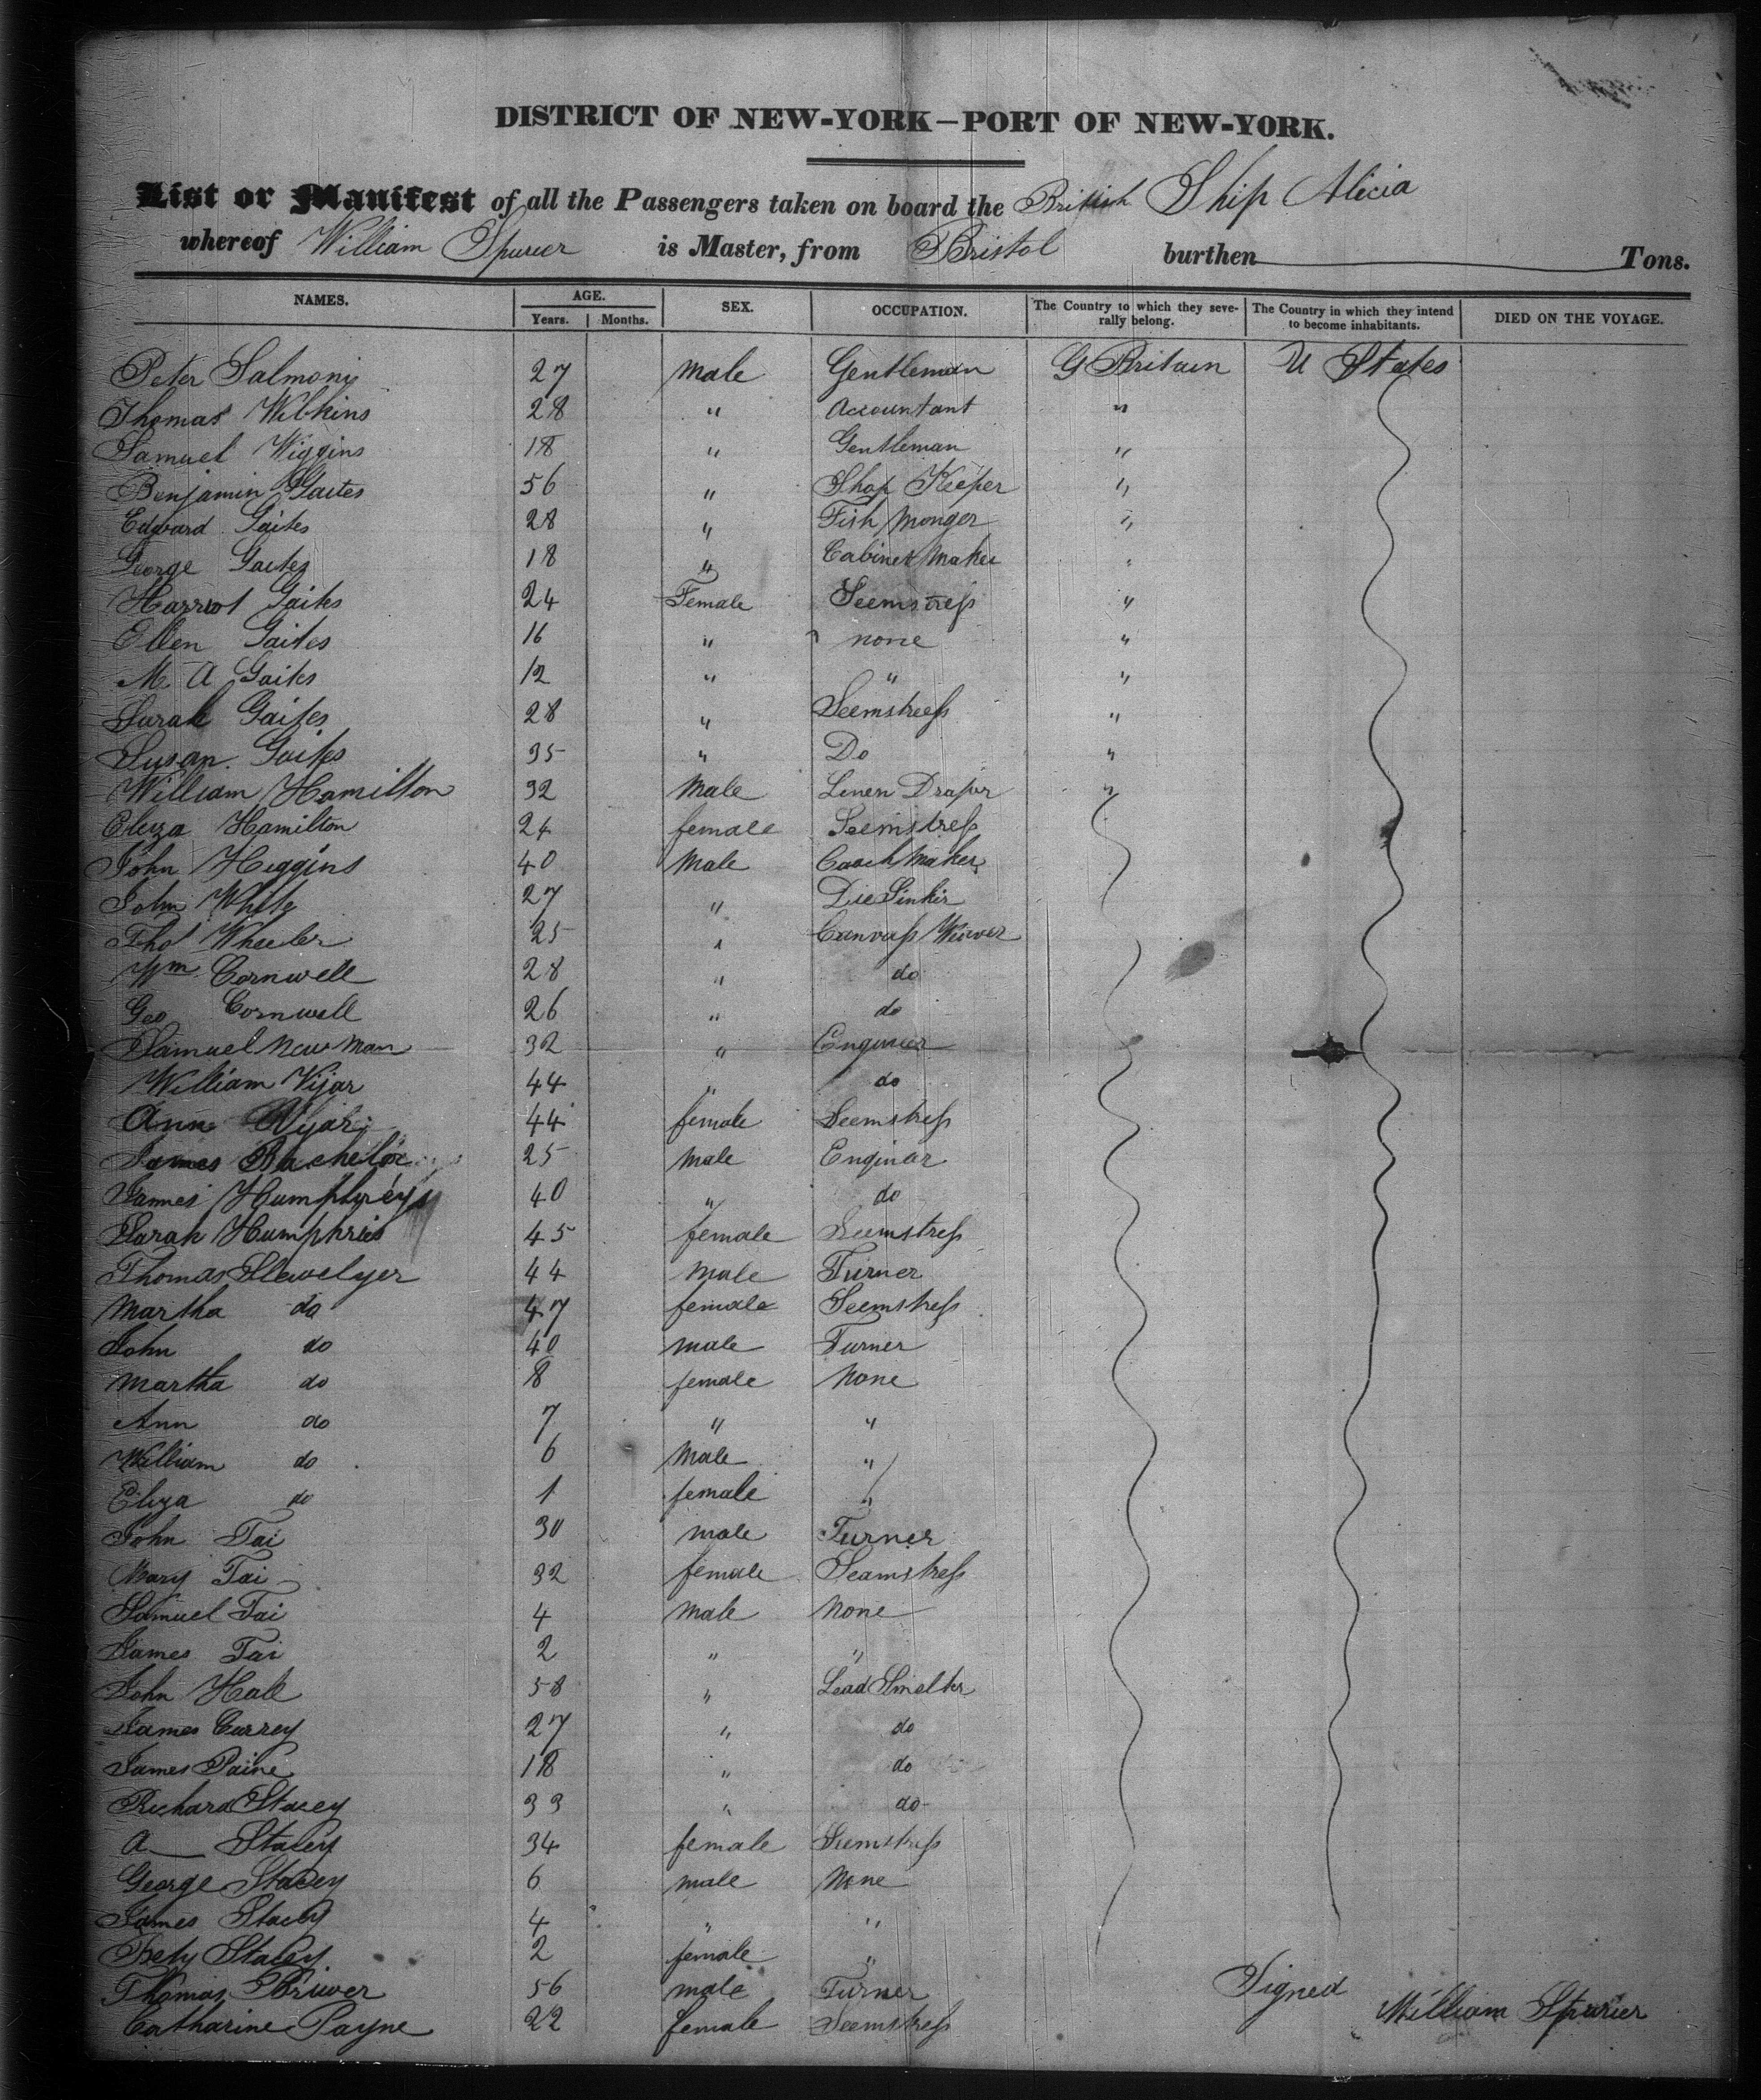 DISTRICT OF NEW-YORK—PORT OF NEW-YORK.
List or Manifest of all the Passengers taken on board the British Ship Alicia
whereof William Spurier is Master, from Bristol burthen Tons.
NAMES. AGE. Years. Months. SEX. OCCUPATION. The Country to which they severally belong. The Country in which they intend to become inhabitants. DIED ON THE VOYAGE.
Peter Salmony 27 Male Gentleman G Britain U States
Thomas Wilkins 28 " Accountant "
Samuel Wiggins 18 " Gentleman "
Benjamin Gaites 56 " Shop Keeper "
Edward Gaites 28 " Fish Monger "
George Gaites 18 " Cabinet Maker "
Harriot Gaites 24 Female Seemstress "
Ellen Gaites 16 " none "
M A Gaites 12 " " "
Sarah Gaites 28 " Seemstress "
Susan Gaites 35 " Do "
William Hamilton 32 Male Linen Draper "
Eliza Hamilton 24 female Seemstress
John Higgins 40 Male Coach Maker
John White 27 " Die Sinker
Thos Wheeler 25 " Canvass Weaver
Wm Cornwell 28 " do
Geo Cornwell 26 " do
Samuel Newman 32 " Engineer
William Vijar 44 " do
Ann Vijar 44 female Seemstress
James Bachelor 25 Male Enginer
James Humphreys 40 " do
Sarah Humphries 45 female Seemstress
Thomas Llewelyer 44 Male Turner
Martha do 47 female Seemstress
John do 40 male Turner
Martha do 8 female None
Ann do 7 " "
William do 6 Male "
Eliza do 1 female "
John Tai 30 male Turner
Mary Tai 32 female Seamstress
Samuel Tai 4 Male None
James Tai 2 " "
John Hale 58 " Lead Smelter
James Currey 27 " do
James Paine 18 " do
Richard Stacey 33 " do
A— Stacey 34 female Seemstress
George Stacey 6 male None
James Stacey 4 " "
Stacey 2 female "
Thomas Bruver 56 male Turner
Catharine Payne 22 female Seemstress
Signed William Spurier